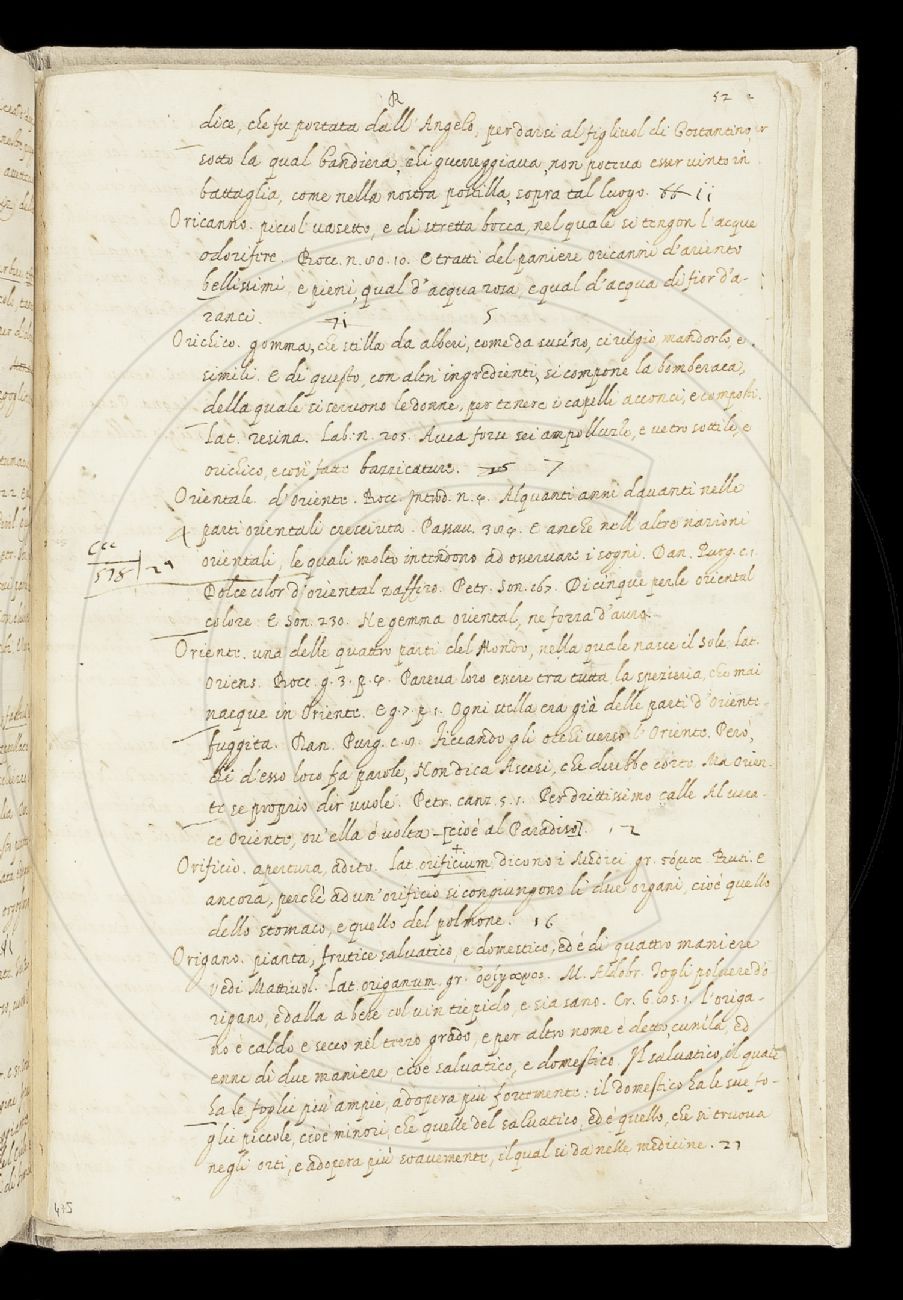 R 52 2
dice, che fu portata dall'Angelo, per darsi al figliuol di Gostantino, e
sotto la qual bandiera, chi guerreggiaua, non poteua esser uinto in
battaglia, come nella nostra postilla, sopra tal luogo.
Oricanno. piccol uasetto, e di stretta bocca, nel quale si tengon l'acque
odorifere. Bocc. n. 80. 10. E tratti del paniere oricanni d'ariento
bellissimi, e pieni, qual d'acqua rosa, e qual d'acqua di fior d'a-
ranci. 71 5
Orichico. gomma, che stilla da alberi, come da susino, ciriegio, mandorlo, e
simili. E di questo, con altri ingredienti, si compone la bomberaca,
della quale si seruono le donne, per tenere i capelli acconci, e composti.
Lat. resina. Lab. n. 205. Auea forse sei ampolluzze, e uetro sottile, e
orichico, e così fatte bazzicature. 7
Orientale. d'oriente. Bocc. Introd. n. 4. Alquanti anni dauanti nelle
parti orientali cresciuta. Passau. 384. E anche nell'altre nazioni
orientali, le quali molto intendono ad osseruare i sogni. Dan. Purg. c. 1.
Ccc
578 29
Dolce color d'oriental zaffiro. Petr. Son. 267. Di cinque perle oriental
colore. E Son. 230. Ne gemma oriental, ne forza d'auro.
Oriente. una delle quattro parti del Mondo, nella quale nasce il Sole. Lat.
Oriens. Bocc. g. 3. p. 4. Pareua loro essere tra tutta la spezieria, che mai
nacque in Oriente. E g. 7. p. 1. Ogni stella era già delle parti d'Oriente
fuggita. Dan. Purg. c. 9. Ficcando gli occhi verso l'Oriente. Però,
chi d'esso loco fa parole, Non dica Ascesi, che direbbe corto. Ma Orien-
te se proprio dir vuole. Petr. canz. 5. 1. Per drittissimo calle Al uera-
ce Oriente, ou'ella è volta [cioè al Paradiso]. 2
Orificio. apertura, adito. Lat. orificium dicono i Medici gr. Buti. E
ancora, perchè ad un'orificio si congiungono li due organi, cioè quello
dello stomaco, e quello del polmone. 16
Origano. pianta, frutice saluatico, e domestico, ed è di quattro maniere
vedi Mattiuol. Lat. origanum. gr. ὀρίγανος. M. Aldobr. Togli poluere d'o-
rigano, e dalla a bere col vin tiepido, e sia sano. Cr. 6. 85. 1. L'origa-
no è caldo e secco nel terzo grado, e per altro nome è detto cunila, ed
enne di due maniere cioè saluatico, e domestico. Il saluatico, il quale
ha le foglie più ampie, adopera più fortemente: il domestico ha le sue fo-
glie piccole, cioè minori, che quelle del saluatico, ed è quello, che si truoua
negli orti, e adopera più soauemente, il qual si dà nelle medicine. 21